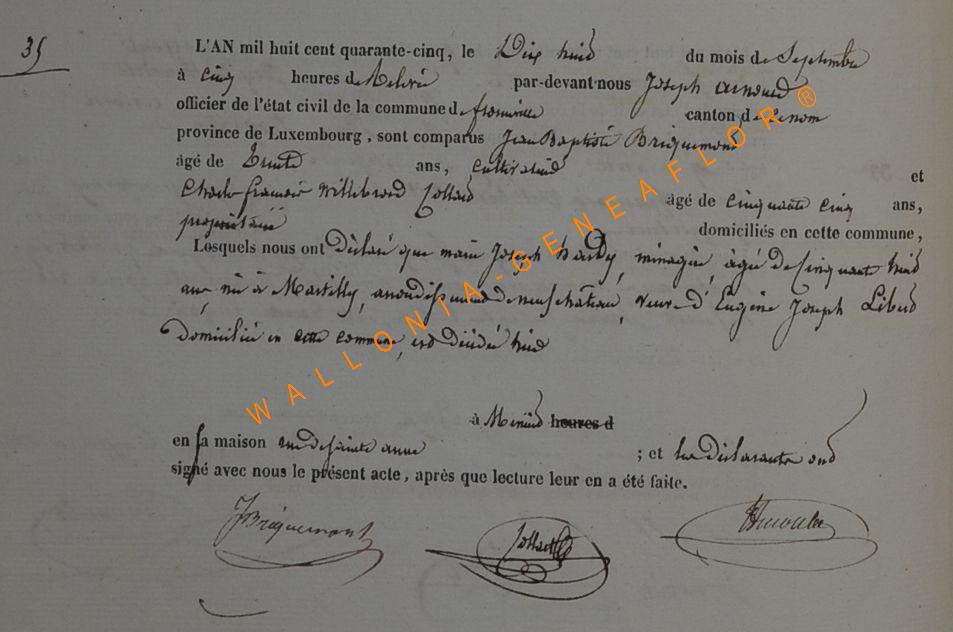 35
L'AN mil huit cent quarante-cinq, le Dix huit du mois de Septembre
à cinq heures de Relevée par-devant-nous Joseph
officier de l'état civil de la commune de canton de
province de Luxembourg, sont comparus Jean Baptiste Bricquemont
âgé de Trente ans, cultivateur et
Charles françois Willebrord Collard âgé de cinquante cinq ans,
propriétaire domiciliés en cette commune,
Lesquels nous ont Déclaré que marie Joseph hardy, ménagère, âgée de cinquante huit
ans, née à Martilly, arrondissement de neufchâteau, veuve d'Eugène Joseph Libert
Domiciliée en cette commune, est décédée hier
à Minuit heures d
en sa maison rue de sainte anne ; et les déclarants ont
signé avec nous le présent acte, après que lecture leur en a été faite.
JBricquemont Collard
WALLONIA-GENEAFLOR®